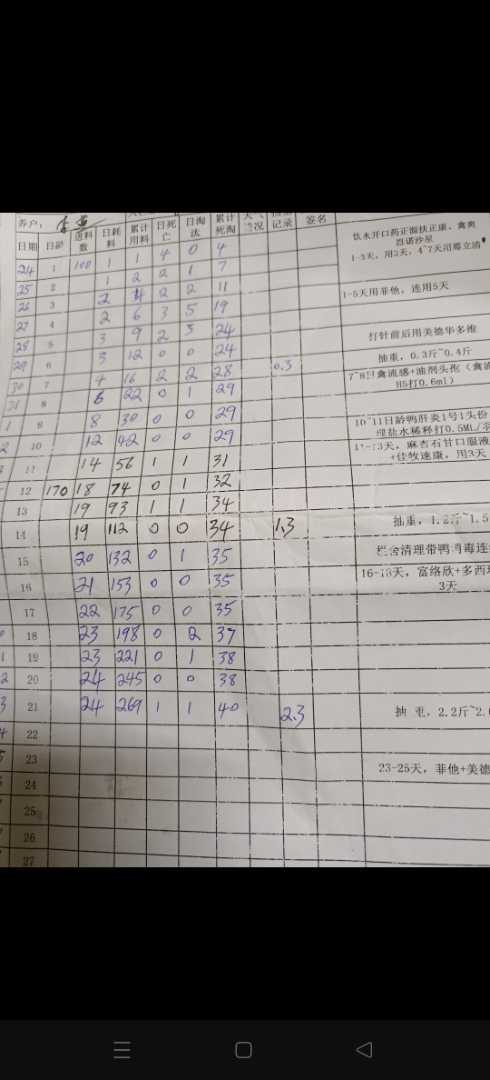 养户：
日期 日龄 进料数 日耗料 累计用料 日死亡 日淘汰 累计死淘 天气情况 记录 签名
饮水开口药正源扶正康，禽爽
恩诺沙星
1-3天，用3天，4~7天用霉立清
24 1 100 1 1 4 0 4
25 2 1 2 2 1 7
26 3 2 4 2 2 11 1-5天用菲他，连用5天
27 4 2 6 3 5 19
28 5 3 9 2 3 24 打针前后用美德华多维
29 6 3 12 0 0 24 抽重，0.3斤~0.4斤
30 7 4 16 2 2 28 0.3
H5打0.6ml）
8 6 22 0 1 29
1 9 8 30 0 0 29
2 10 12 42 0 0 29
10~11日龄鸭肝炎1号1头份
11 14 56 1 1 31
+佳牧速康，用3天
12 170 18 74 0 1 32
13 19 93 1 1 34
14 19 112 0 0 34 1.3 抽重，1.2斤~1.5
15 20 132 0 1 35 栏舍清理带鸭消毒连
16 21 153 0 0 35 16-18天，富络欣+多西环
3天
17 22 175 0 0 35
18 23 198 0 2 37
19 23 221 0 1 38
20 24 245 0 0 38
21 24 269 1 1 40 2.3 抽重，2.2斤~2.
22
23 23-25天，菲他+美德
24
25
26
27